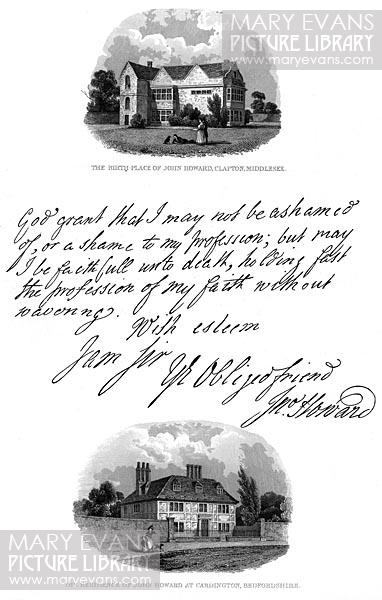 MARY EVANS
PICTURE LIBRARY
www.maryevans.com
THE BIRTH-PLACE OF JOHN HOWARD, CLAPTON, MIDDLESEX.
God grant that I may not be ashamed
of, or a shame to my profession; but may
I be faithfull unto death, holding fast
the profession of my faith without
wavering.
With esteem
I am Sir
Yr Obliged friend
Jno. Howard
RESIDENCE OF JOHN HOWARD AT CARDINGTON, BEDFORDSHIRE.
MARY EVANS
PICTURE LIBRARY
www.maryevans.com
MARY EVANS
PICTURE LIBRARY
www.maryevans.com